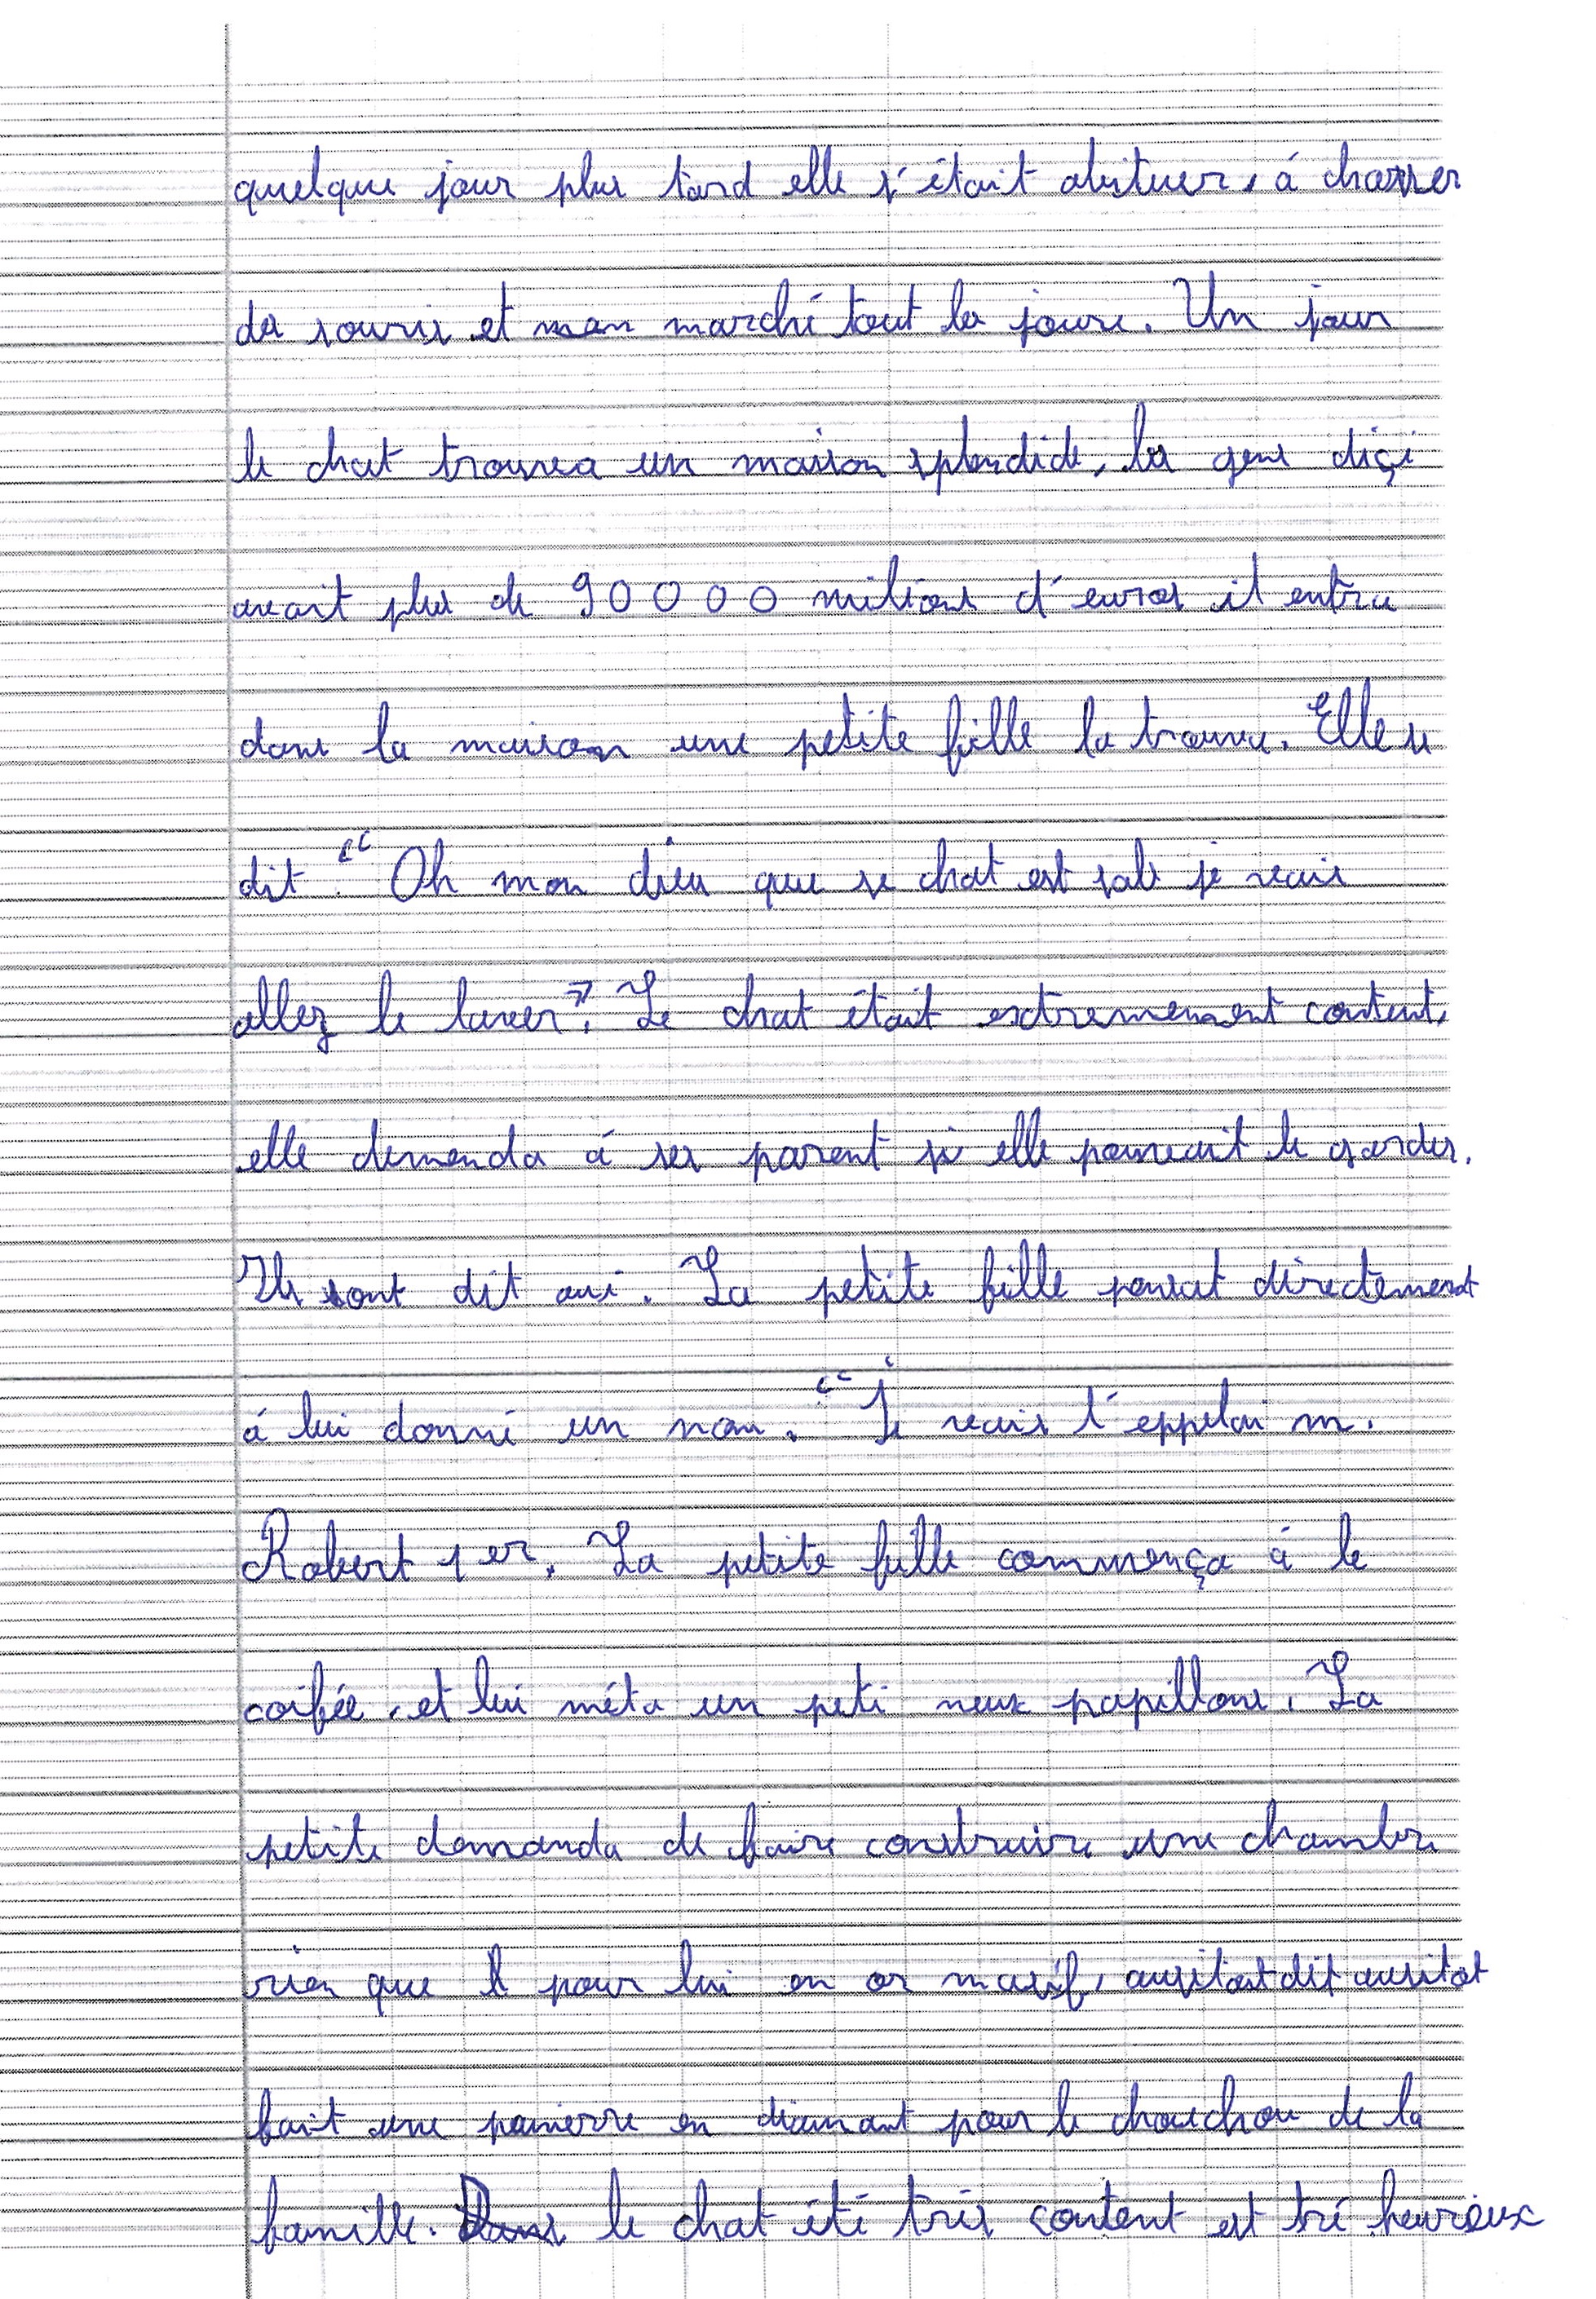 quelque jour plus tard elle s'était abituer, à chasser
da souris et man marché tout la jours. Un jour
le chat trouva un maison splendide, la gens diçi
avait plus de 90000 milions d'euros il entra
dans la maison une petite fille la trouva. Elle se
dit : “ Oh mon dieu que se chat est sale je vais
allez le laver ”. Le chat était extremement content,
elle demenda à ses parent si elle pouvait le garder.
Ils sont dit oui. La petite fille pensat directement
à lui donné un nom. “ Je vais t'eppelai m.
Robert 1er. La petite fille commença à le
coifée, et lui méta un peti neux papillons. La
petite demanda de faire construire une chambre
rien que pour lui en or masif, ausitostdit ausitot
fait une panierre en diamant pour le chouchou de la
famille. le chat été très content est tré heureux